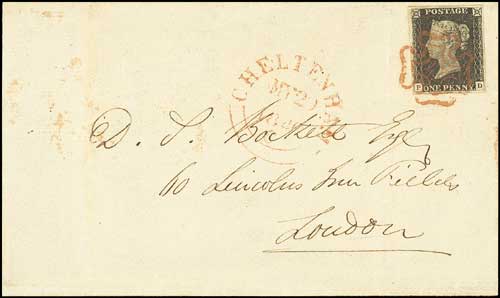 POSTAGE
ONE PENNY
D
CHELTENHAM
D. S. Bockett Esqr
60 Lincolns Inn Fields
London